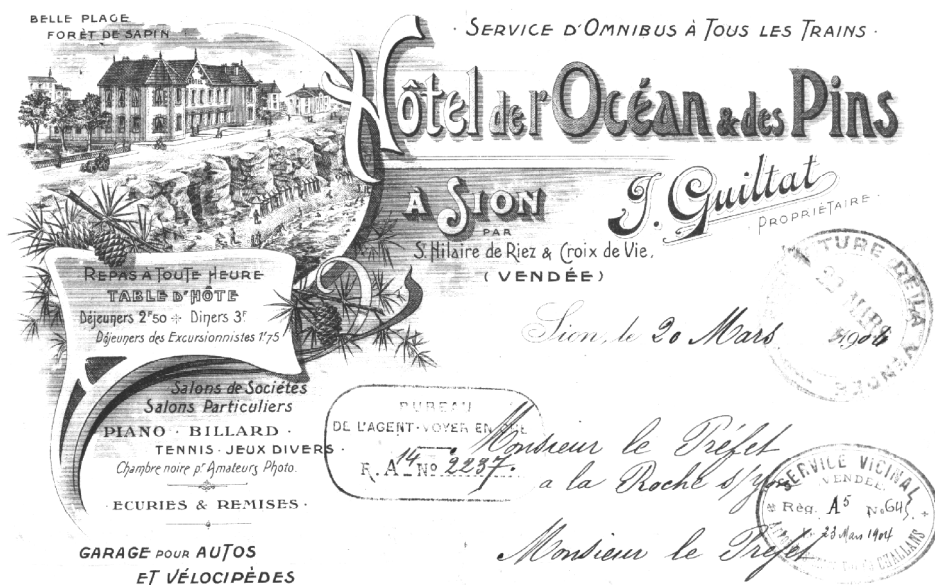 BELLE PLAGE
FORÊT DE SAPIN
· SERVICE D'OMNIBUS À TOUS LES TRAINS ·
Hôtel de l'Océan & des Pins
À SION
PAR
St Hilaire de Riez & Croix de Vie,
(VENDÉE)
J. Guiltat
PROPRIÉTAIRE ·
REPAS À TOUTE HEURE
TABLE D'HÔTE
Déjeuners 2F50 + Diners 3F
Déjeuners des Excursionnistes 1F75
Salons de Sociétés
Salons Particuliers
PIANO · BILLARD ·
TENNIS · JEUX DIVERS
Chambre noire pr Amateurs Photo.
· ECURIES & REMISES ·
GARAGE POUR AUTOS
ET VÉLOCIPÈDES
Sion, le 20 Mars
DE LA VENDÉE
BUREAU
DE L'AGENT-VOYER EN
R. A 14 No 2237.
Monsieur le Préfet
a la Roche s/Yon
SERVICE VICINAL
VENDÉE
Rég. A5 No 645
23 Mars 1904
CHALLANS
Monsieur le Préfet